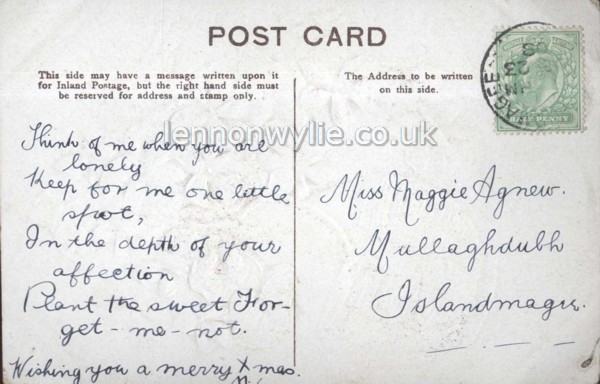 POST CARD
This side may have a message written upon it
for Inland Postage, but the right hand side must
be reserved for address and stamp only.
The Address to be written
on this side.
HALF PENNY
lennonwylie.co.uk
Think of me when you are
lonely
Keep for me one little
spot,
In the depth of your
affection
Plant the sweet For-
get-me-not.
Wishing you a merry Xmas.
Miss Maggie Agnew.
Mullaghdubh
Islandmagee.